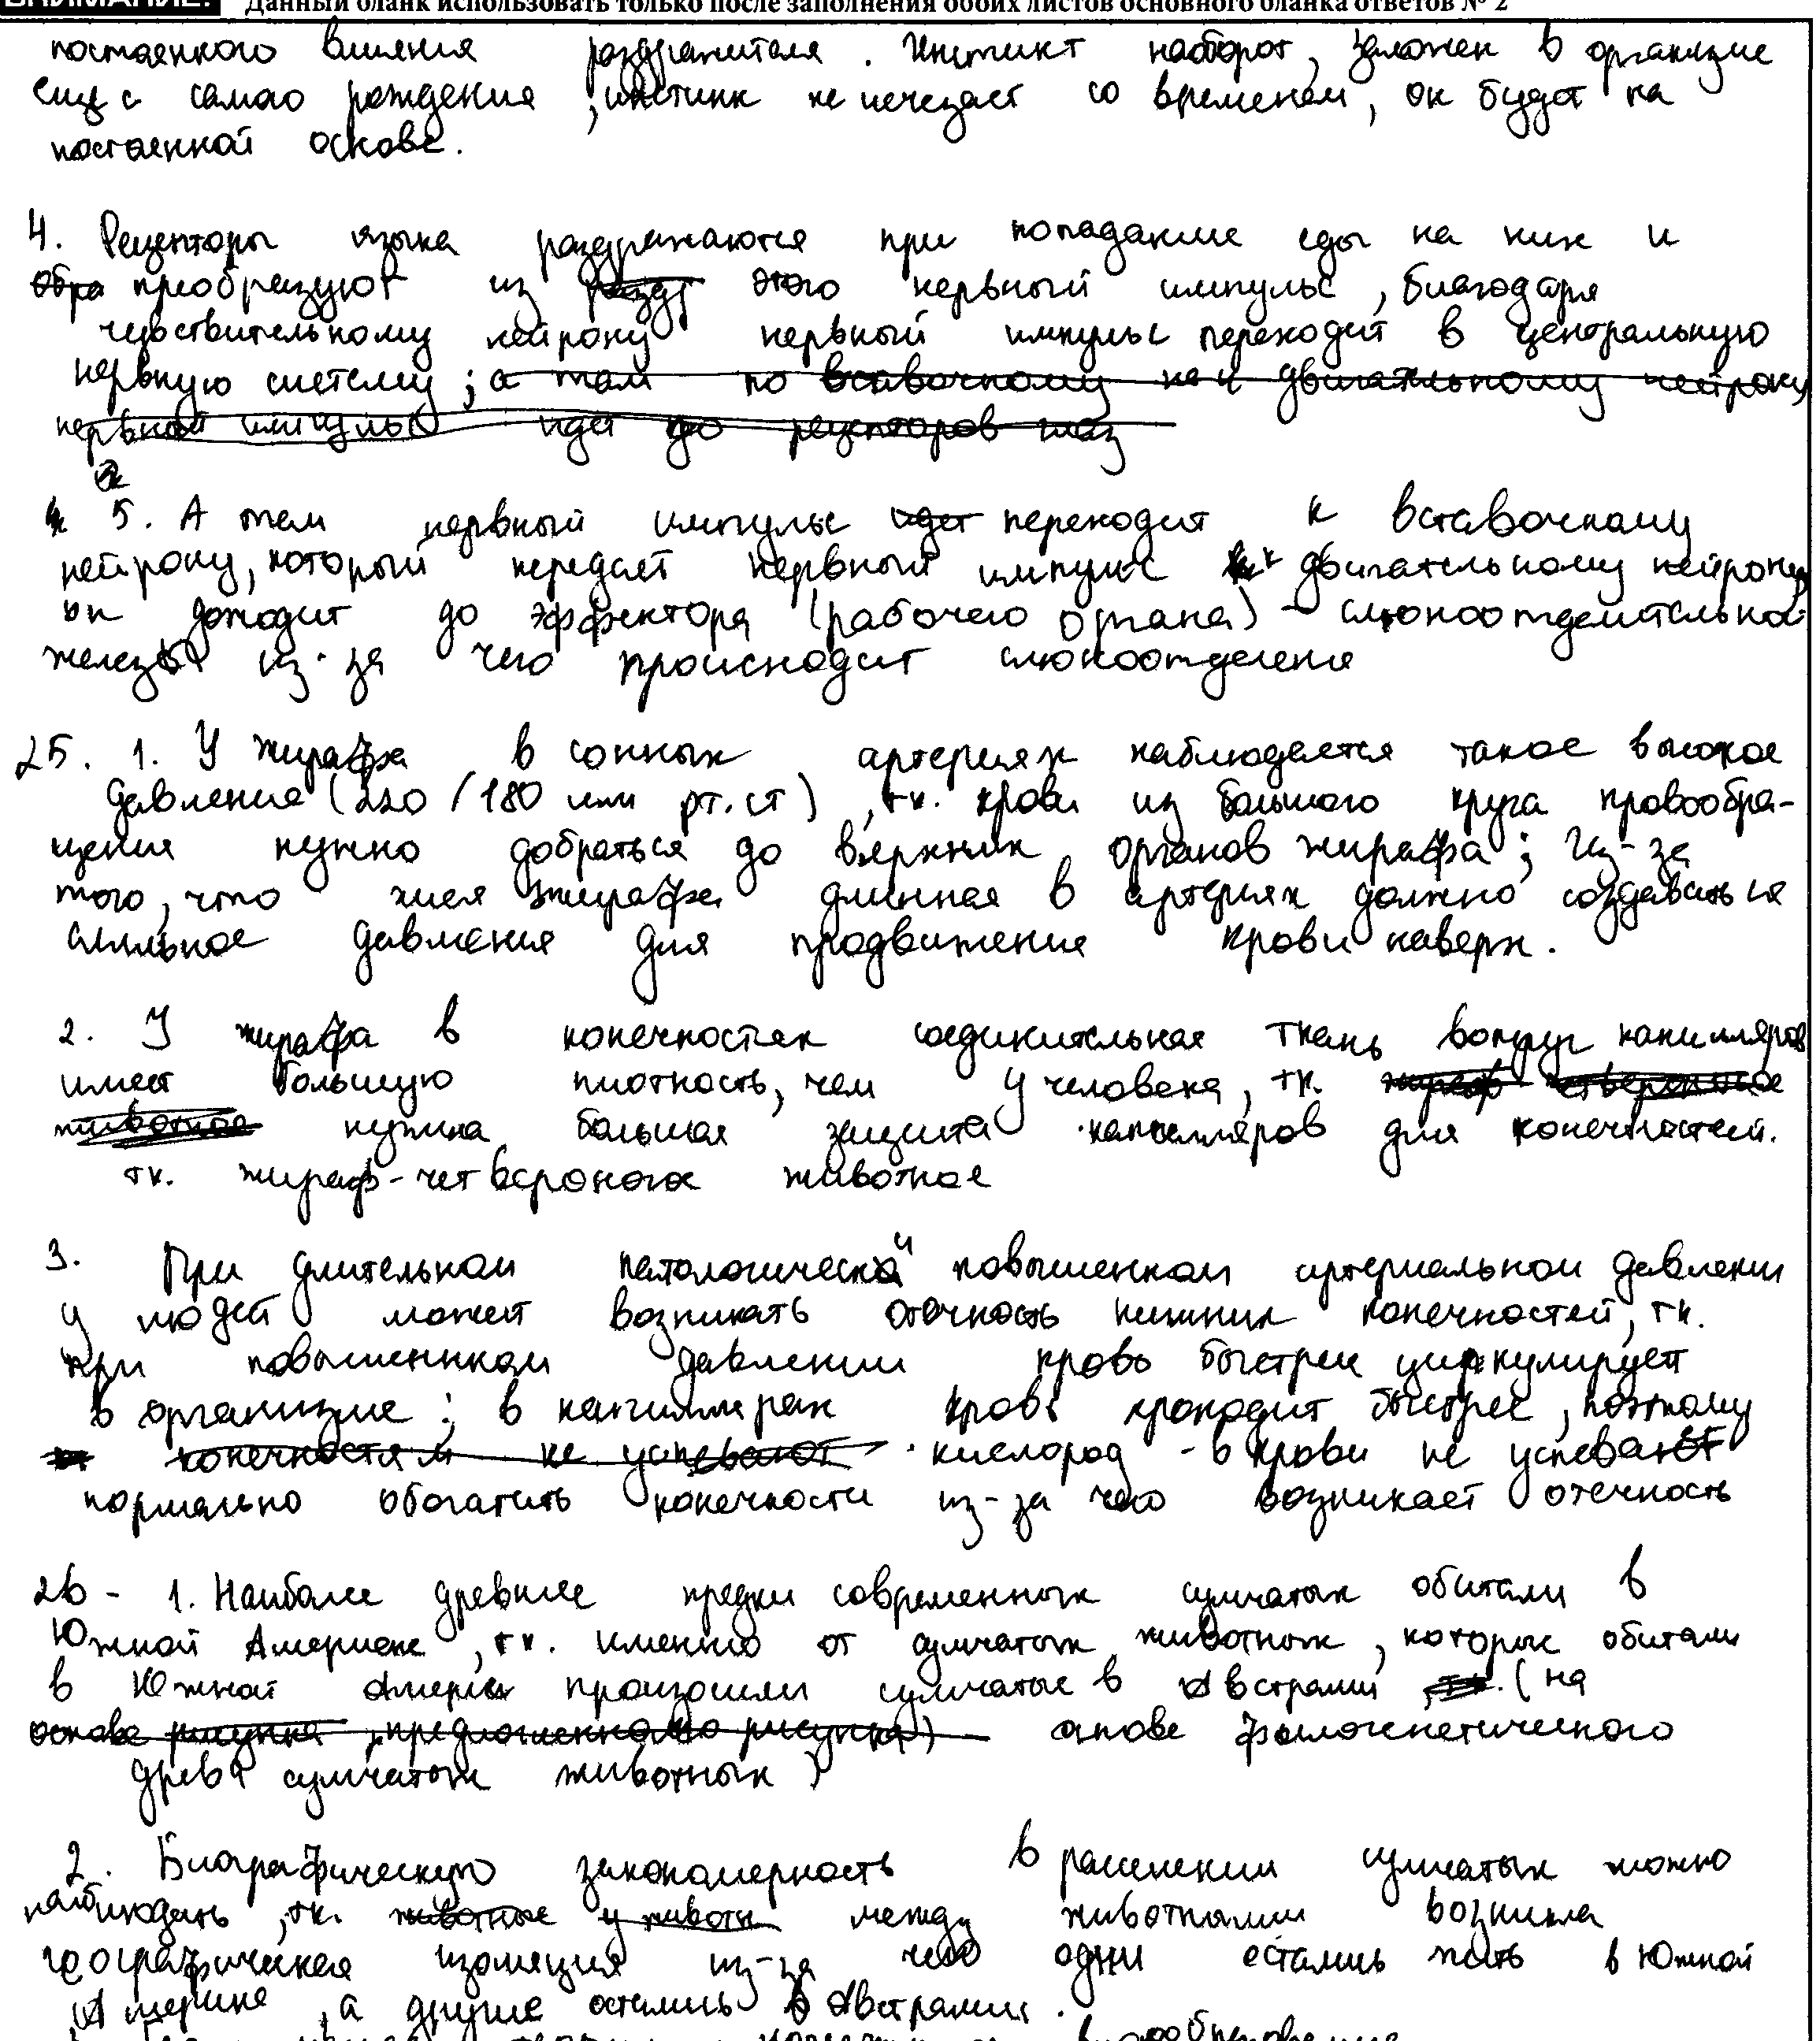 ВНИМАНИЕ! Данный бланк использовать только после заполнения обоих листов основного бланка ответов № 2
постаенного влияния раздражителя. Инстикт наоборот, заложен в организме
еще с самао рождения, инстинк не исчезает со временем, он будет на
постаенной основе.
4. Рецепторы языка раздражаются при попадание еды на них и
обра преобразуют из разд этого нервный импульс, благодаря
чувствительному нейрону нервный импульс переходит в центральную
нервную систему; а там по вставочному на и двигательному нейрону
нервной импульс идет до рецепторов
5. А там нервный импульс идет переходит к вставочному
нейрону, который передает нервный импульс к двигательному нейрону
он доходит до эффектора (рабочего органа) - слюноотделительной
железы из-за чего происходит слюноотделение
25. 1. У жирафа в сонных артериях наблюдается такое высокое
давление (220/180 мм рт.ст), тк. крови из большого круга кровообра-
щения нужно добраться до верхних органов жирафа; Из-за
того, что шея жирафа длинная в артериях должно создаваться
сильное давление для продвижения крови наверх.
2. У жирафа в конечностях соединительная ткань вокруг капилляров
имеет большую плотность, чем у человека, тк. жираф четвероногое
животное нужна большая защита капилляров для конечностей.
тк. жираф-четвероногое животное
3. При длительном патологически повышенном артериальном давлении
у людей может возникать отечность нижних конечностей, тк.
при повышенном давлении кровь быстрее циркулирует
в организме; в капиллярах кровь проходит быстрее, поэтому
конечностям не успевают кислород в крови не успевает
нормально обогатить конечности из-за чего возникает отечность
26 - 1. Наиболее древние предки современных сумчатых обитали в
Южной Америке, тк. именно от сумчатых животных, которые обитали
в Южной Америке произошли сумчатые в Австралии тк. (на
основе рисунка предложенного рисунка) основе филогенетического
древа сумчатых животных)
2. Биографическую закономерность в расселении сумчатых можно
наблюдать, тк. животные у животн между животными возникла
географическая изоляция из-за чего одни остались жить в Южной
Америке, а другие остались в Австралии.